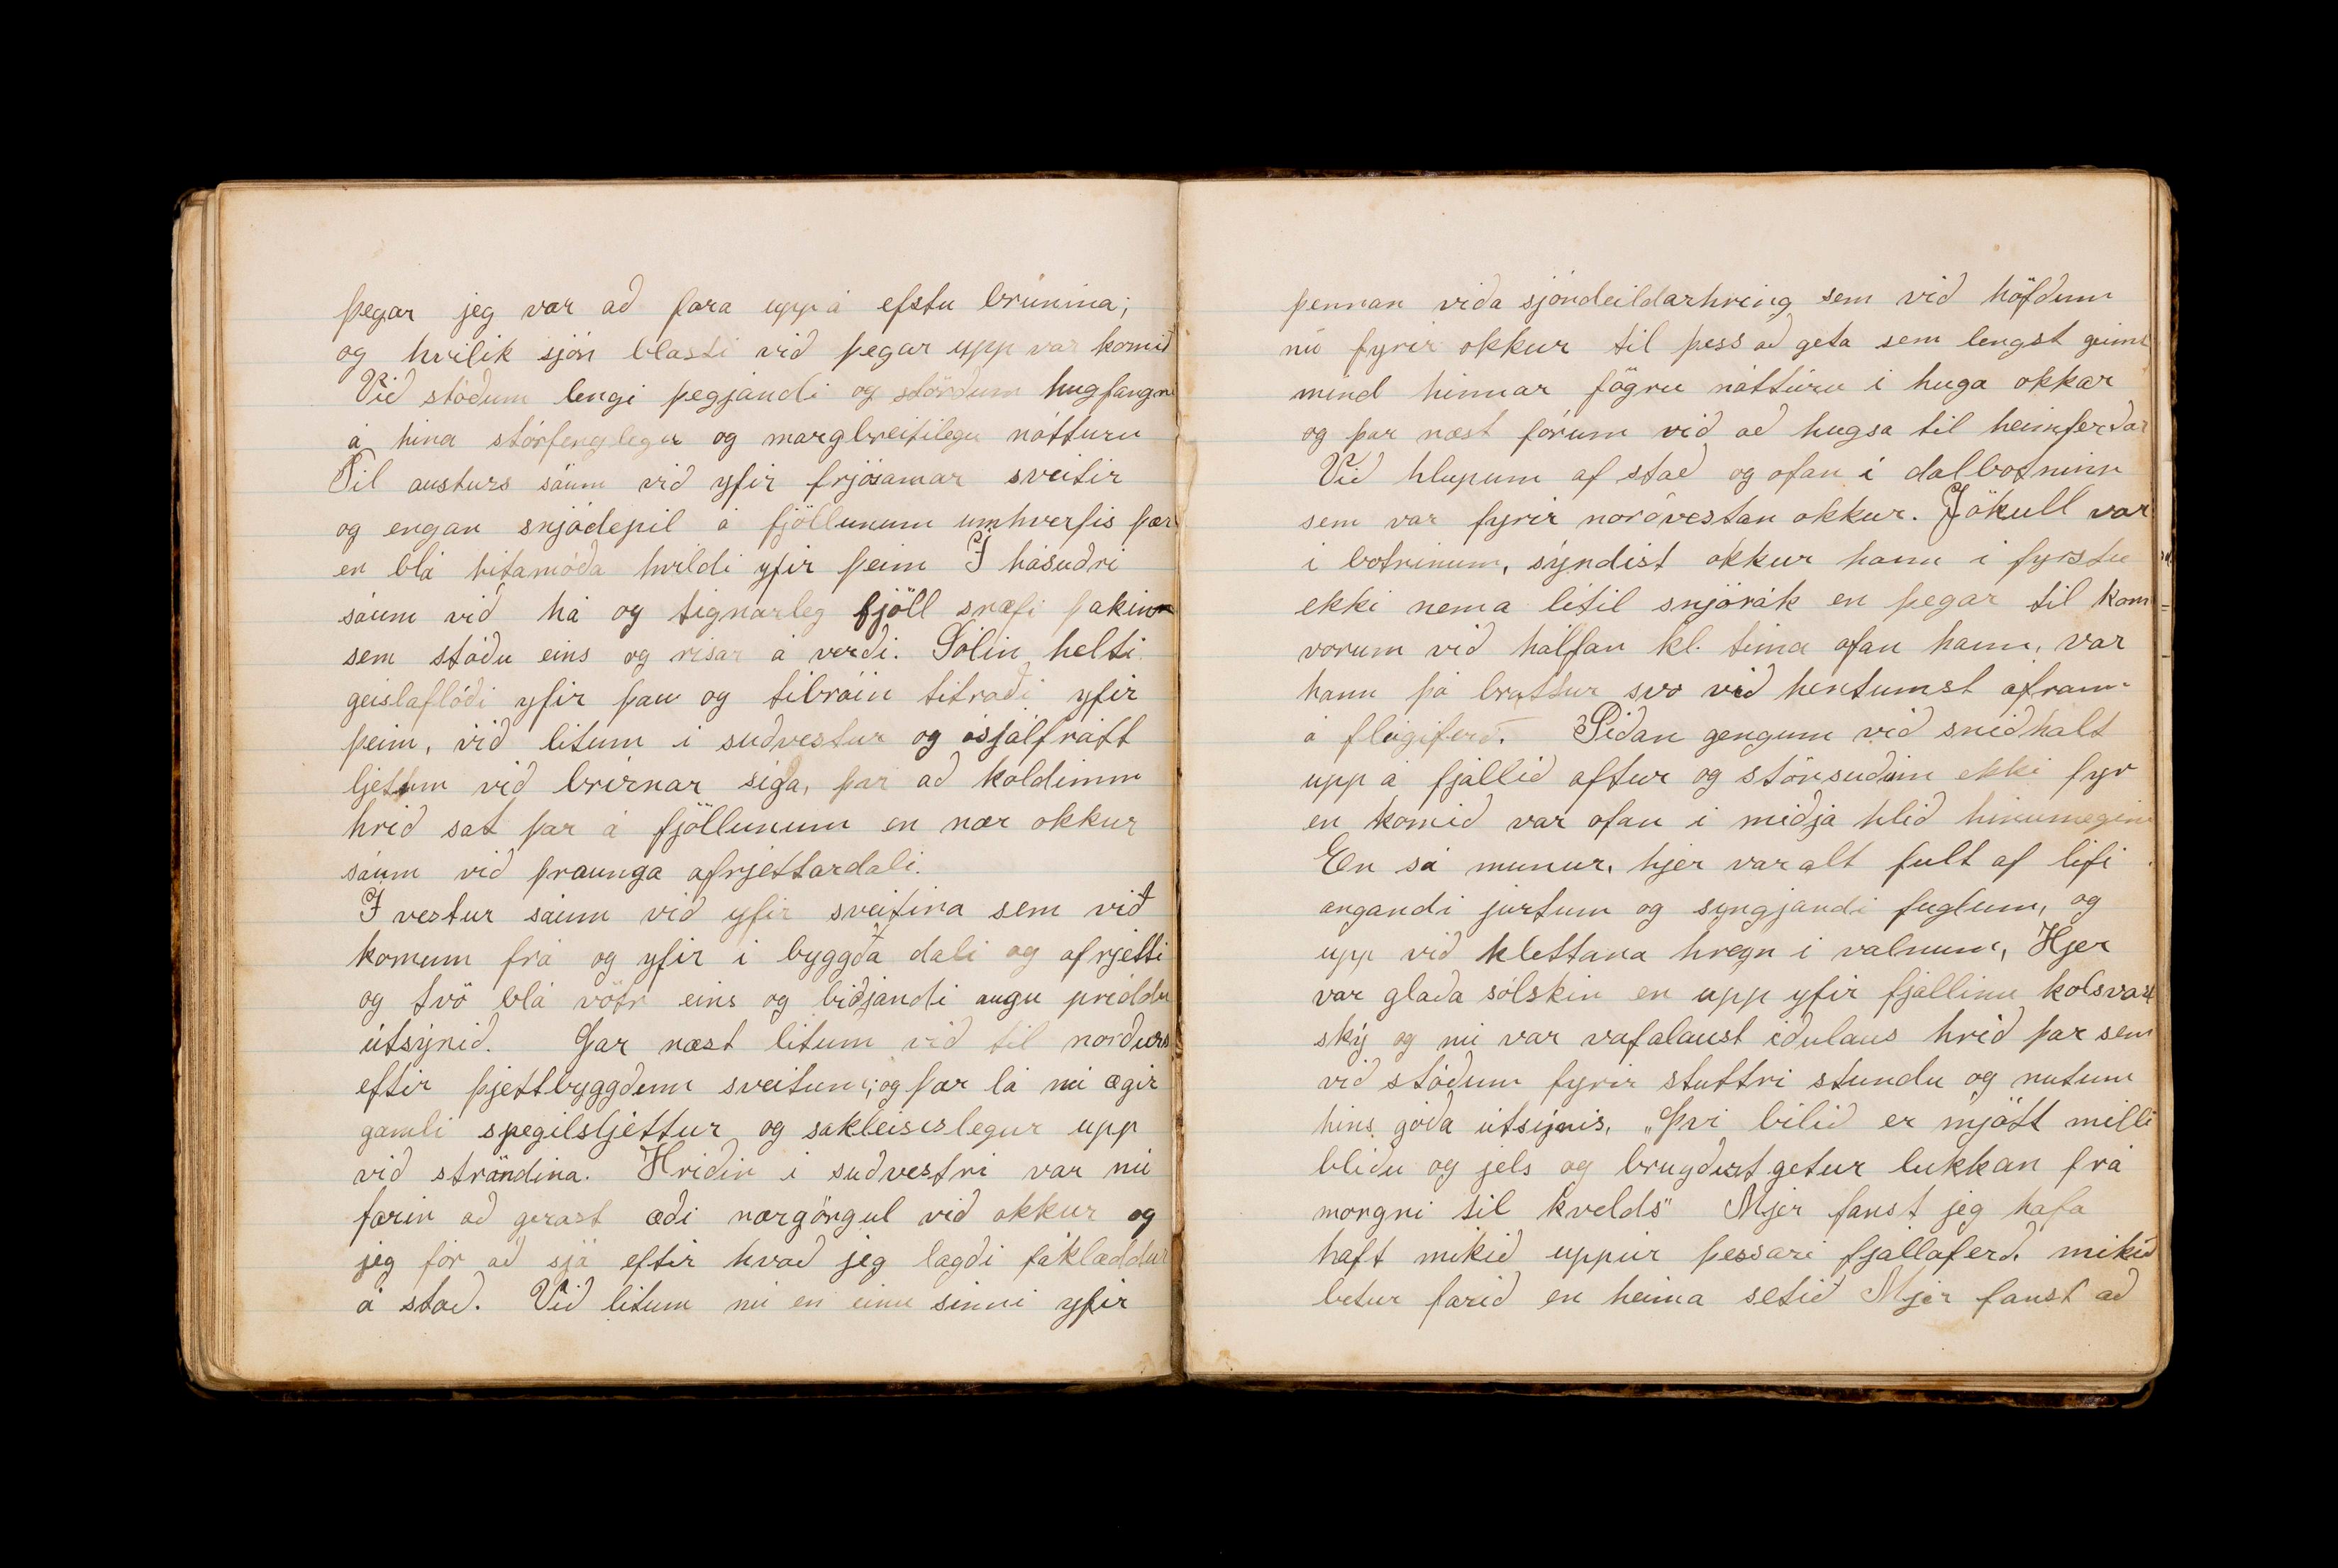 þegar jeg var að fara upp á efstu brúnina;
og hvílik sjón blasti við þegar upp var komið
Við stóðum lengi þegjandi og störðum hugfangni
á hina stórfenglegu og margbreitilegu nátturu
Til austurs sáum við yfir frjósamar sveitir
og engan snjódepil á fjöllunum umhverfis þær
en blá hitamóða hvíldi yfir þeim Í hásuðri
sáum við há og tignarleg fjöll snæfi þakinn
sem stóðu eins og risar á verði. Sólin helti
geislaflóði yfir þau og tibráin titraði yfir
þeim, við litum í suðvestur og ósjálfrátt
ljetum við brírnar síga, þar að koldimm
hríð sat þar á fjöllunum en nær okkur
sáum við þraunga afrjettardali.
Í vestur sáum við yfir sveitina sem við
komum frá og yfir í byggða dali og afrjetti
og tvö blá vötn eins og biðjandi augu príddu
útsýnið. Þar næst litum við til norðurs
eftir þjettbyggðum sveitum; og þar lá nú ægir
gamli spegilsljettur og sakleisislegur upp
við ströndina. Hríðin í suðvestri var nú
farin að gerast æði nærgöngul við okkur og
jeg fór að sjá eftir hvað jeg lagði fáklæddur
á stað. Við litum nú en einu sinni yfir
þennan víða sjóndeildarhring sem við höfðum
nú fyrir okkur til þess að geta sem lengst geimt
mind hinnar fögru náttúru í huga okkar
og þar næst fórum við að hugsa til heimferðar
Við hlupum af stað og ofan í dalbotninn
sem var fyrir norðvestan okkur. Jökull var
í botninum, sýndist okkur hann í fyrstu
ekki nema lítil snjórák en þegar til kom
vorum við hálfan kl. tíma ofan hann, var
hann þá brattur svo við hentumst áfram
á fleigiferð. Síðan gengum við sniðhalt
upp á fjallið aftur og stönsuðum ekki fyr
en komið var ofan í miðja hlíð hinumegin
En sá munur, hjer var alt fult af lífi
angandi jurtum og syngjandi fuglum, og
upp við klettana hregn í valnum, Hjer
var glaða sólskin en upp yfir fjallinu kolsvart
ský og nú var vafalaust iðulaus hríð þar sem
við stóðum fyrir stuttri stundu og nutum
hins góða útsýnis, „Því bilið er mjótt milli
blíðu og jels og brugðist getur lukkan frá
morgni til kvelds" Mjer fanst jeg hafa
haft mikið uppúr þessari fjallaferð, mikið
betur farið en heima setið Mjer fanst að